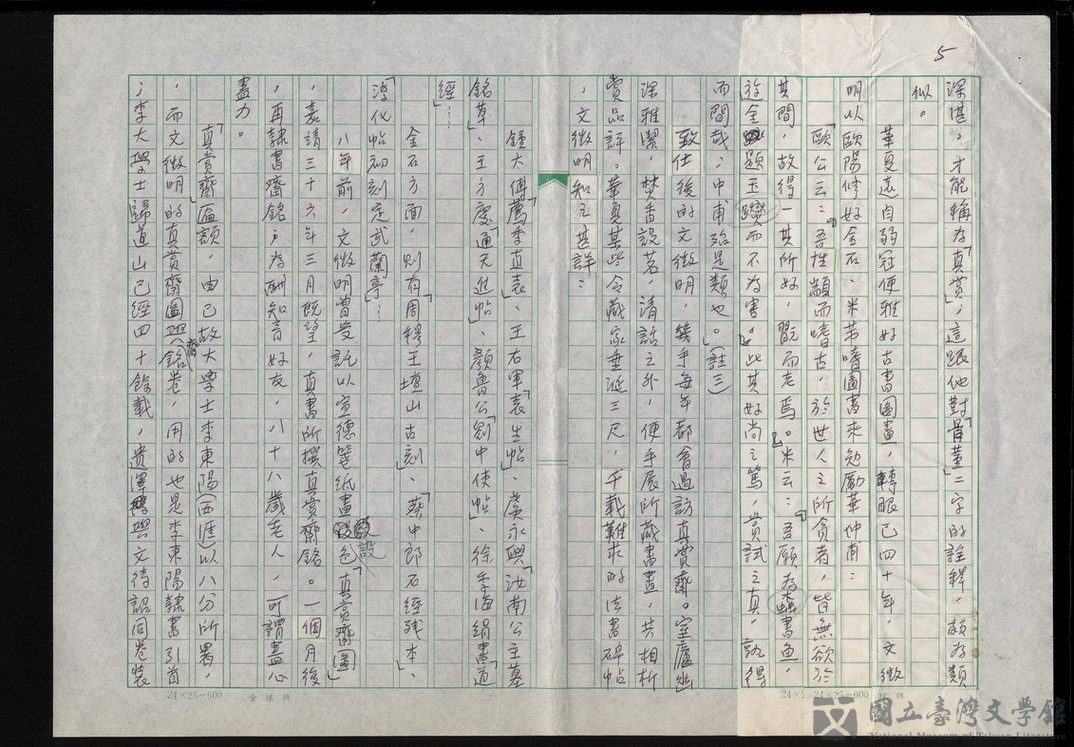 5
深湛，才能稱為「真賞」，這跟他對「骨董」二字的詮釋，頗為類
似。
華夏遠自弱冠便雅好古書圖畫，轉眼已四十年，文徵
明以歐陽修好金石、米芾嗜圖書來勉勵華仲甫：
「歐公云：『吾性顓而嗜古，於世人之所貪者，皆無欲於
其間，故得一其所好，翫而老焉。』米云：『吾願為蠹書魚，
遊金題玉躞而不為害。』此其好尚之篤，賞試之真，孰得
而間哉，中甫殆是類也。」（註三）
致仕後的文徵明，幾乎每年都會過訪真賞齋。室廬幽
深雅潔，焚香設茗，清話之外，便手展所藏書畫，共相析
賞品評。華夏某些令藏家垂涎三尺，千載難求的法書碑帖
，文徵明知之甚詳：
鍾大傅「薦季直表」、王右軍「袁生帖」、虞永興「汝南公主墓
銘草」、王方慶「通天進帖」、顏魯公「劉中使帖」、徐季海「絹書道
經」……
金石方面，則有「周穆王壇山古刻」、「蔡中郎石經殘本」、
「淳化帖初刻定武蘭亭」……
八年前，文徵明曾受託以宣德箋紙畫設色「真賞齋圖」
，嘉靖三十六年三月既望，真書所撰真賞齋銘。一個月後
，再隸書齋銘，為酬知音好友，八十八歲老人，可謂盡心
盡力。
「真賞齋」匾額，由已故大學士李東陽（西涯）以八分所署，
，而文徵明的真賞齋圖與（齋）銘卷，用的也是李東陽隸書引首
；李大學士歸道山已經四十餘載，遺墨與文待詔同卷裝
24×25=600
金球牌
24×25=600
國立臺灣文學館
National Museum of Taiwan Literature